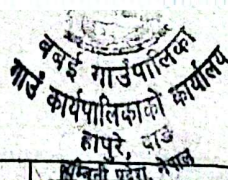 बबई गाउँपालिका
गाउँ कार्यपालिकाको कार्यालय
हापुरे, दाङ
लुम्बिनी प्रदेश, नेपाल